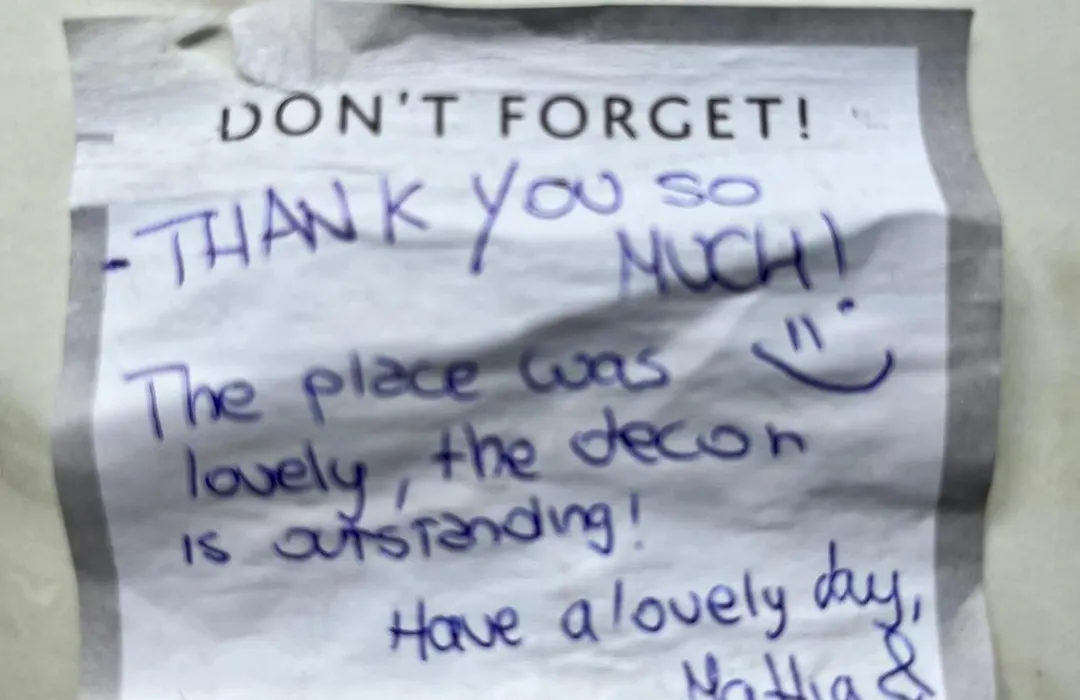 DON'T FORGET!
- THANK YOU SO
MUCH!
The place was
lovely, the decor
is outstanding!
Have a lovely day,
Mattia &